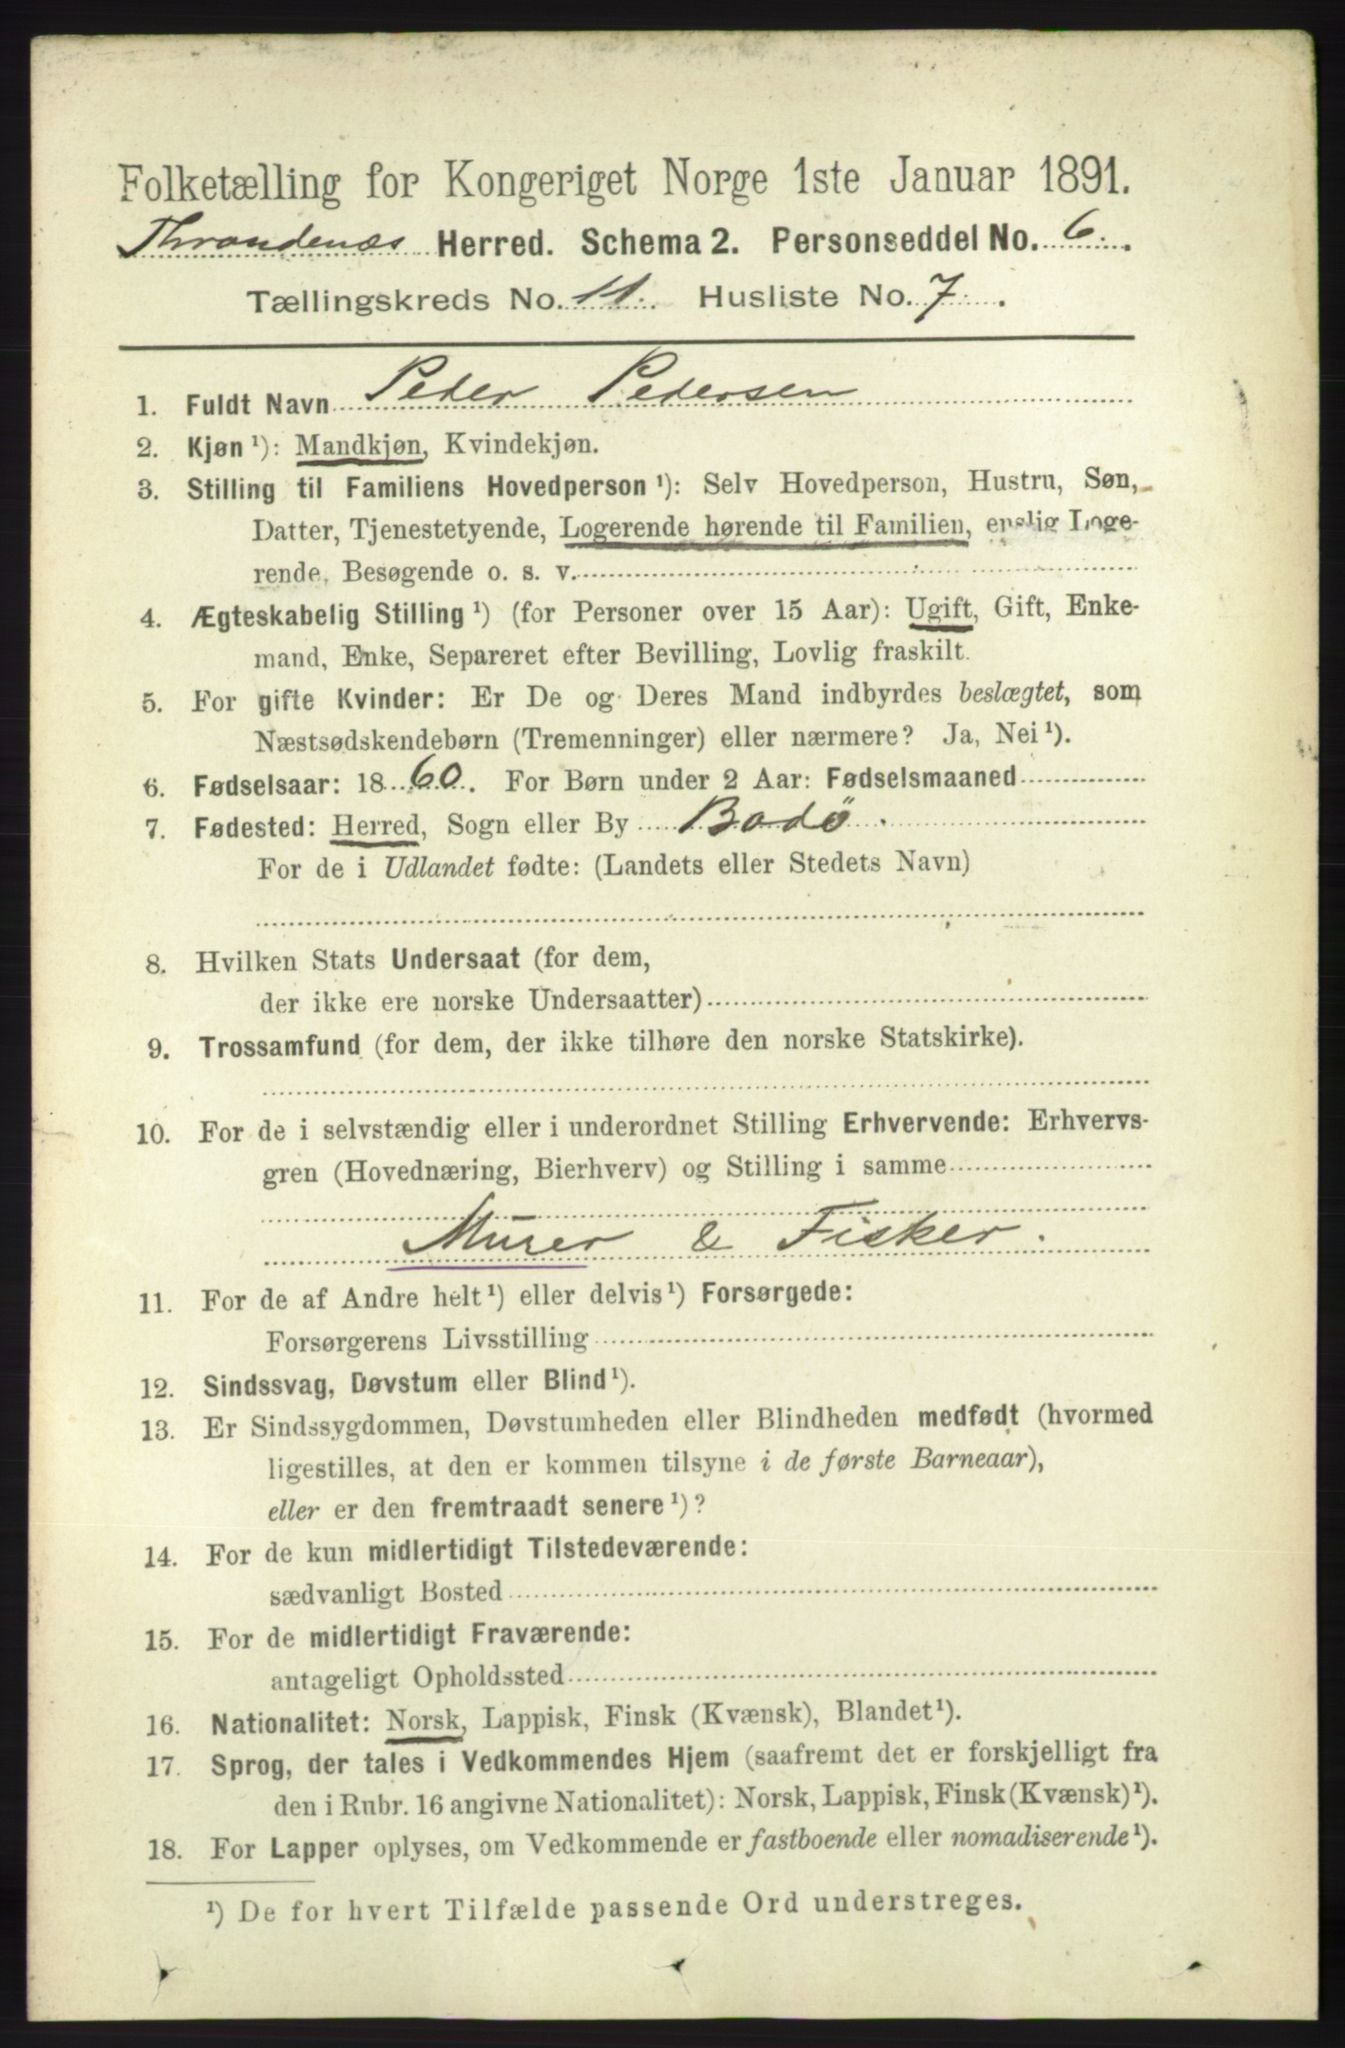 Folketælling for Kongeriget Norge 1ste Januar 1891.
Throndenæs Herred. Schema 2. Personseddel No. 6.
Tællingskreds No. 11. Husliste No. 7.
1. Fuldt Navn Peder Pedersen
2. Kjøn ¹): Mandkjøn, Kvindekjøn.
3. Stilling til Familiens Hovedperson ¹): Selv Hovedperson, Hustru, Søn,
Datter, Tjenestetyende, Logerende hørende til Familien, enslig Loge-
rende, Besøgende o. s. v.
4. Ægteskabelig Stilling ¹) (for Personer over 15 Aar): Ugift, Gift, Enke-
mand, Enke, Separeret efter Bevilling, Lovlig fraskilt.
5. For gifte Kvinder: Er De og Deres Mand indbyrdes beslægtet, som
Næstsødskendebørn (Tremenninger) eller nærmere? Ja, Nei ¹).
6. Fødselsaar: 1860. For Børn under 2 Aar: Fødselsmaaned
7. Fødested: Herred, Sogn eller By Bodö.
For de i Udlandet fødte: (Landets eller Stedets Navn)
8. Hvilken Stats Undersaat (for dem,
der ikke ere norske Undersaatter)
9. Trossamfund (for dem, der ikke tilhøre den norske Statskirke).
10. For de i selvstændig eller i underordnet Stilling Erhvervende: Erhvervs-
gren (Hovednæring, Bierhverv) og Stilling i samme
Murer & Fisker.
11. For de af Andre helt ¹) eller delvis ¹) Forsørgede:
Forsørgerens Livsstilling
12. Sindssvag, Døvstum eller Blind ¹).
13. Er Sindssygdommen, Døvstumheden eller Blindheden medfødt (hvormed
ligestilles, at den er kommen tilsyne i de første Barneaar),
eller er den fremtraadt senere ¹)?
14. For de kun midlertidigt Tilstedeværende:
sædvanligt Bosted
15. For de midlertidigt Fraværende:
antageligt Opholdssted
16. Nationalitet: Norsk, Lappisk, Finsk (Kvænsk), Blandet ¹).
17. Sprog, der tales i Vedkommendes Hjem (saafremt det er forskjelligt fra
den i Rubr. 16 angivne Nationalitet): Norsk, Lappisk, Finsk (Kvænsk) ¹).
18. For Lapper oplyses, om Vedkommende er fastboende eller nomadiserende ¹).
¹) De for hvert Tilfælde passende Ord understreges.